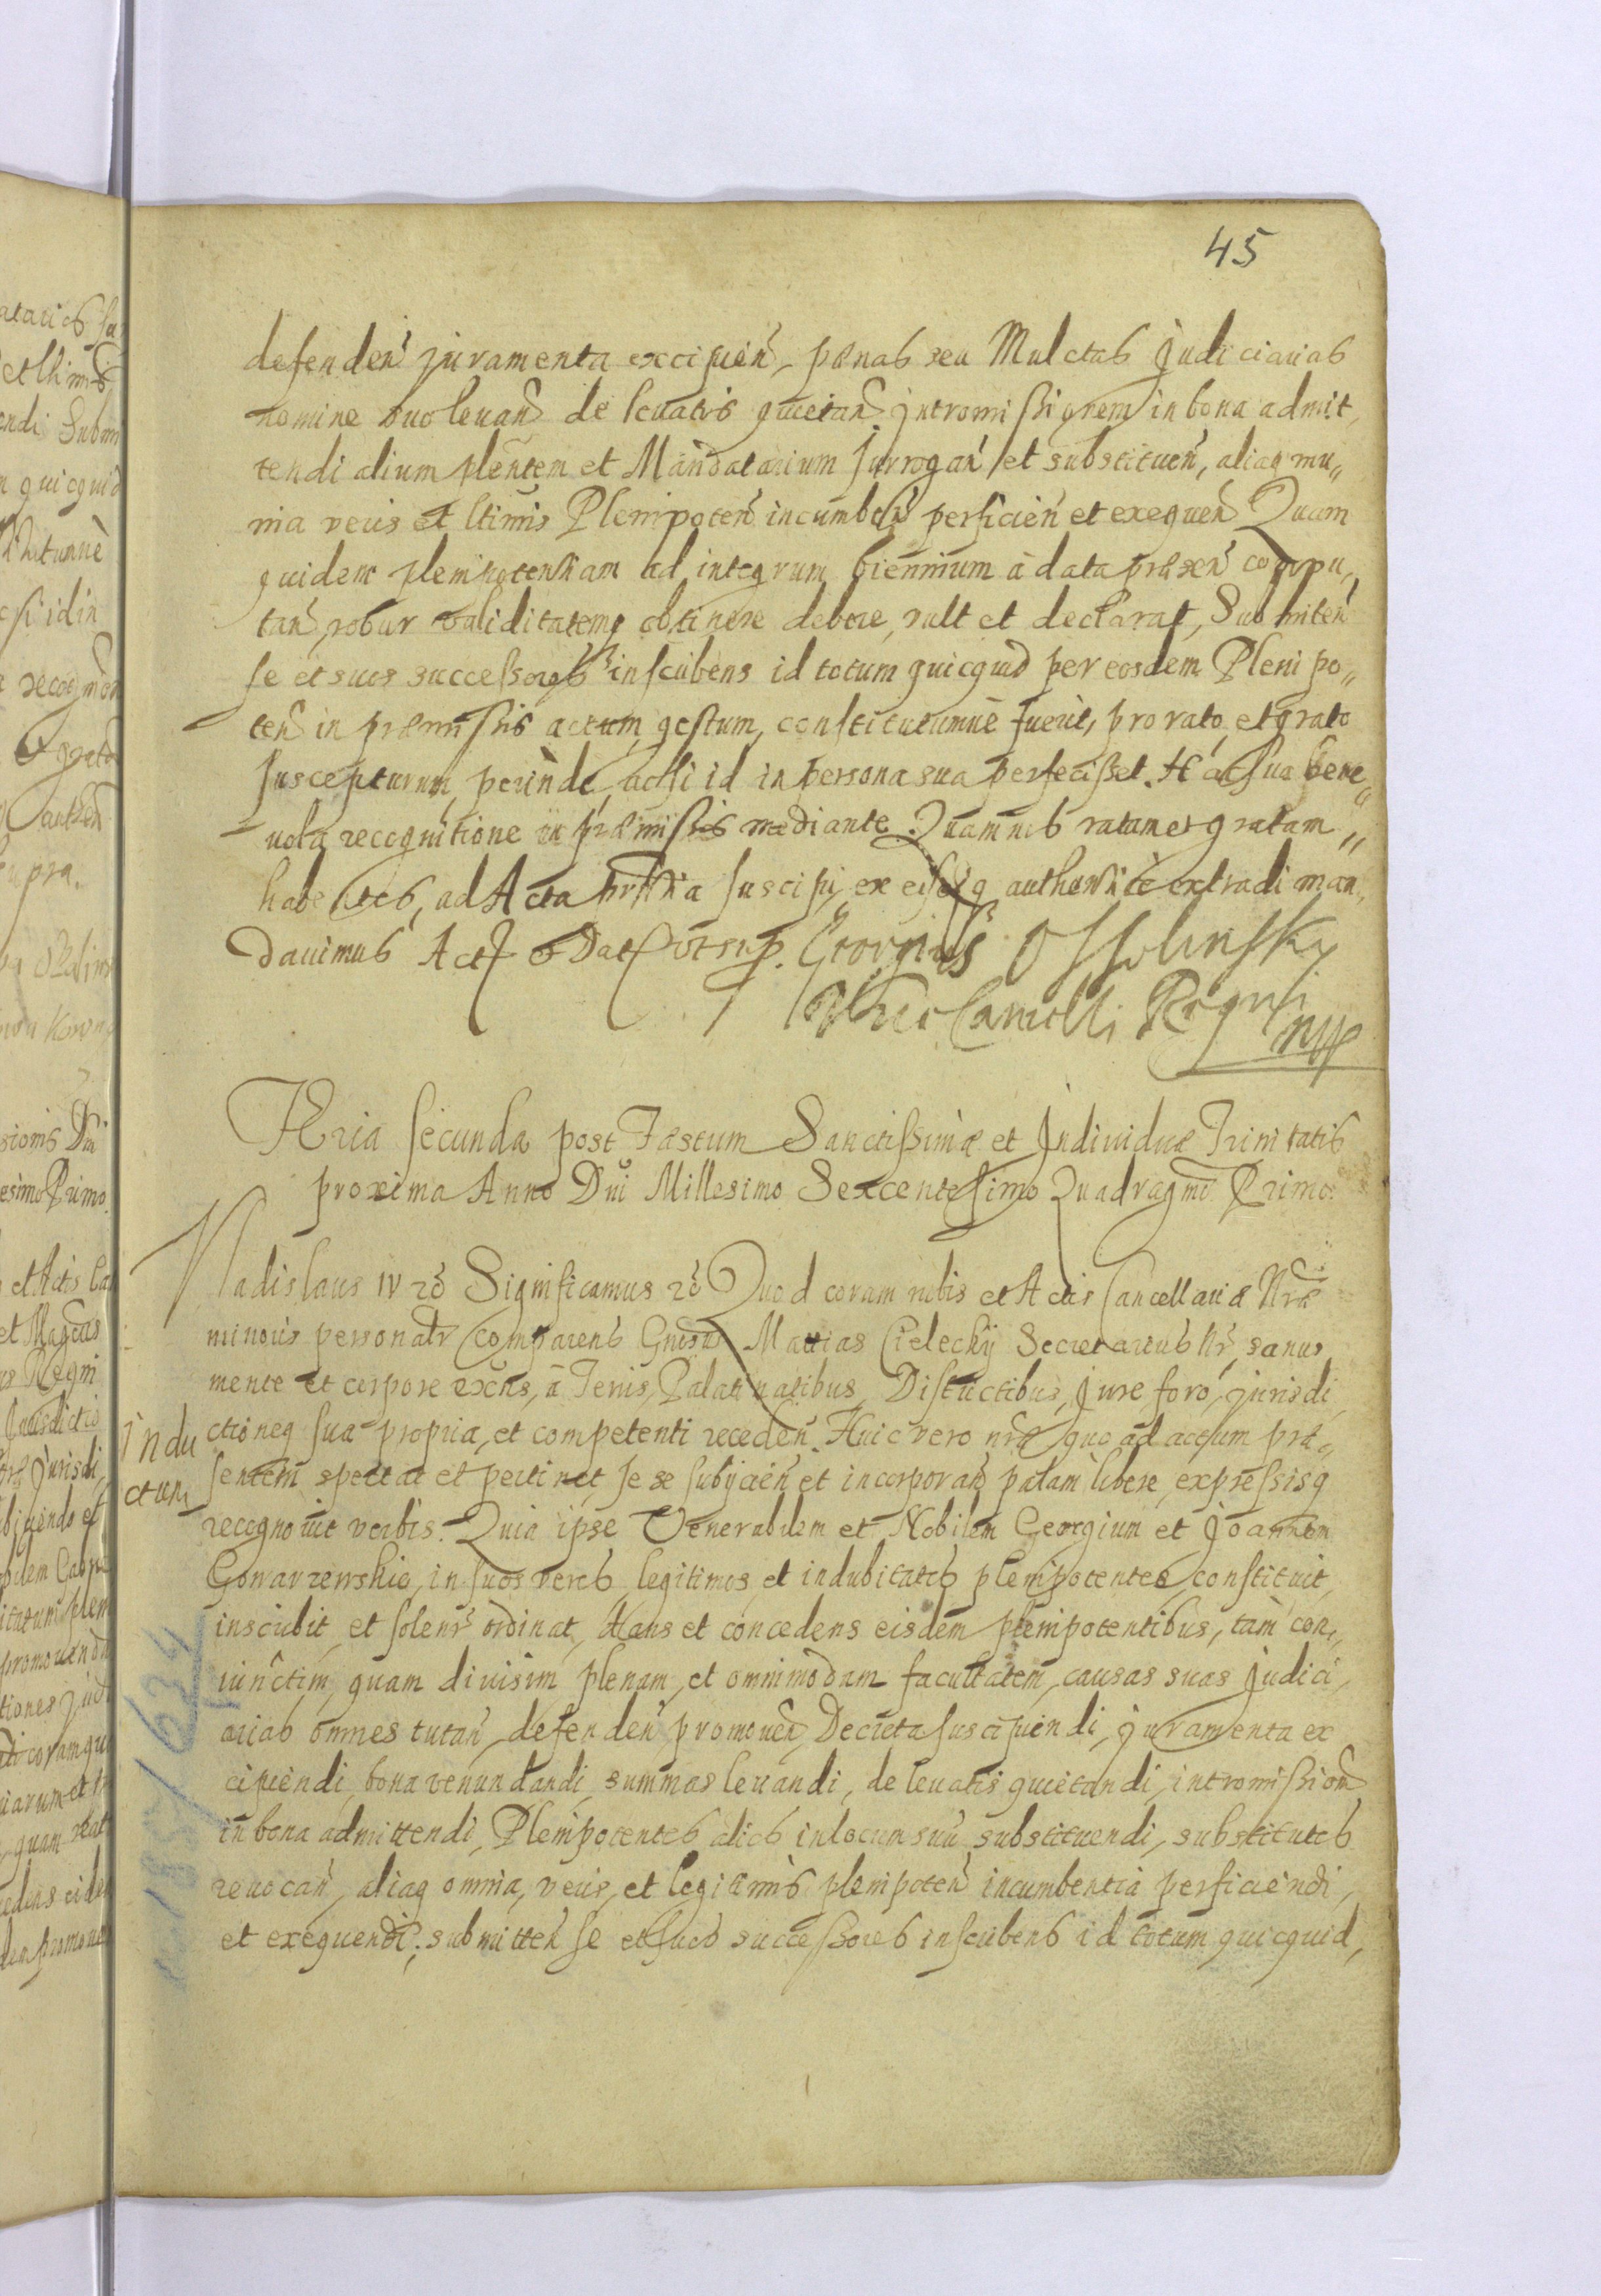 45
defenden̄ juramenta excipien̄, pænas seu Mulctas Judiciarias
nomine suo levan̄ de levatis quietan̄ Intromissionem in bona admit,
tendi alium plen̄tem et Mandatarium surrogan̄ et substituen̄, aliaq mu„
nia veris et ltimis Plenipoten̄ incumben̄ perficien̄ et exequen̄ Quam
quidem plenipotentiam ad integrum biennium à data præsen̄ compu,
tan̄ robur validitatemq obtinere debere, vult et declarat, Submiten̄
se et suos successores inscribens id totum quicquid per eosdem Plenipo„
ten̄ in præmissis actum, gestum, constitutumue fuerit, pro rato, et grato
suscepturum, perinde, acsi id in persona sua perfecisset. Hac sua bene„
uola recognitione in præmissis mediante. Quam nos ratam et gratam„
habentes, ad Acta prn̄tia suscipi, ex eisq authentice extradi man,
dauimus Act & Dat ut sup. Georgius Ossolinsky
Vice Cancell Regni
mpp
Feria secunda post Fæstum Sanctissimæ et Individuæ Trinitatis
proxima Anno Dni Millesimo Sexcentesimo Quadragmo Primo.
Vladislaus IV &c Significamus &c Quod coram nobis et Actis Cancellariæ Nræ
minoris personalr comparens Gn̄sus Mattias Cielecky Secretarius Nr, sanus
mente et corpore exn̄s, à Terris, Palatinatibus, Districtibus, Jure foro, jurisdi,
ctioneq sua propria, et competenti receden̄. Huic vero nr̄æ quo ad actum præ„
Indu
ctum
sentem spectat et pertinet se se subijcien̄ et incorporan̄ palam libere, expressisq
recognouit verbis. Quia ipse Venerabilem et Nobilem Georgium et Joannem
Gowarzewskie, in suos veros legitimos et indubitatos plenipotentes constituit,
inscribit, et solenr ordinat, dans et concedens eisdem plenipotentibus, tam con„
iunctim, quam diuisim plenam, et omnimodam facultatem, causas suas Judici,
arias omnes tutan̄, defenden̄, promouen̄, Decreta suscipiendi, juramenta ex
cipiendi, bona venundandi, summas leuandi, de leuatis quietandi, intromissionem
in bona admittendi, Plenipotentes alios in locum suu substituendi, substitutos
reuocan̄, aliaq omnia, veris, et legitimis plenipoten̄ incumbentia perficiendi,
et exequendi; submitten̄ se et suos successores inscribens id totum quicquid,